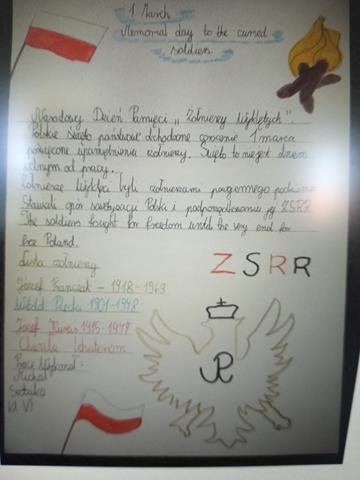 1 March
Memorial day to the cursed
soldiers
Narodowy Dzień Pamięci „Żołnierzy Wyklętych".
Polskie święto państwowe obchodzone corocznie 1 marca
poświęcone upamiętnieniu żołnierzy. Święto to nie jest dniem
wolnym od pracy.
Żołnierze Wyklęci byli żołnierzami powojennego podziemia
Stawiali opór sowietyzacji Polski i podporządkowaniu jej ZSRR
The soldiers fought for freedom until the very end for
free Poland.
Lista żołnierzy
ZSRR
Józef Franczak - 1918-1963
Witold Pilecki 1901-1948
Józef Kuraś 1915-1947
Chwała bohaterom
Pracę wykonał:
Michał
kl VI